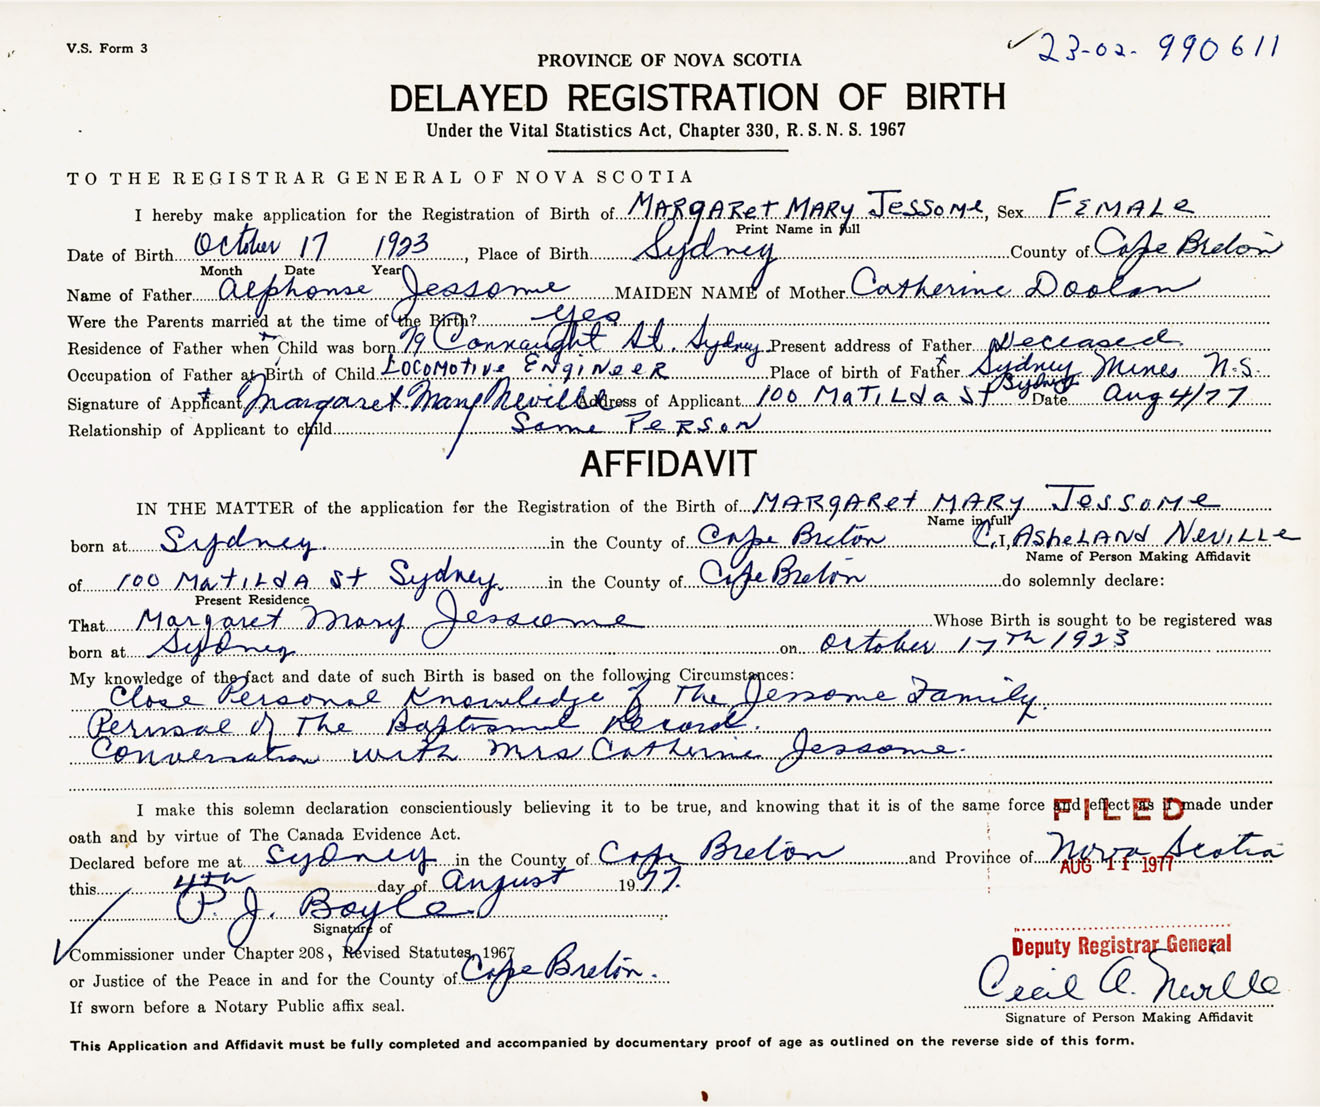 V.S. Form 3
✓ 23-02-990611
PROVINCE OF NOVA SCOTIA
DELAYED REGISTRATION OF BIRTH
Under the Vital Statistics Act, Chapter 330, R.S.N.S. 1967
TO THE REGISTRAR GENERAL OF NOVA SCOTIA
I hereby make application for the Registration of Birth of MARGARET MARY JESSOME, Sex FEMALE
Print Name in full
Date of Birth October 17 1923, Place of Birth Sydney County of Cape Breton
Month Date Year
Name of Father Alphonse Jessome MAIDEN NAME of Mother Catherine Doolan
Were the Parents married at the time of the Birth? yes
Residence of Father when Child was born 79 Connaught St. Sydney Present address of Father Deceased
Occupation of Father at Birth of Child LOCOMOTIVE ENGINEER Place of birth of Father Sydney Mines N.S.
Signature of Applicant Margaret Mary Neville Address of Applicant 100 MATILDA ST Sydney Date Aug 4/77
Relationship of Applicant to child Same PERSON
AFFIDAVIT
IN THE MATTER of the application for the Registration of the Birth of MARGARET MARY JESSOME
Name in full
born at Sydney in the County of Cape Breton C. I, ASHELAND NEVILLE
Name of Person Making Affidavit
of 100 MATILDA ST Sydney in the County of Cape Breton do solemnly declare:
Present Residence
That Margaret Mary Jessome Whose Birth is sought to be registered was
born at Sydney on October 17th 1923
My knowledge of the fact and date of such Birth is based on the following Circumstances:
Close Personal Knowledge of The Jessome Family.
Perusal of The Baptismal Record.
Conversation with Mrs Catherine Jessome.
I make this solemn declaration conscientiously believing it to be true, and knowing that it is of the same force and effect as if made under
FILED
oath and by virtue of The Canada Evidence Act.
Declared before me at Sydney in the County of Cape Breton and Province of Nova Scotia
AUG 11 1977
this 4th day of August 1977.
P. J. Boyle
Signature of
Commissioner under Chapter 208, Revised Statutes, 1967
Deputy Registrar General
or Justice of the Peace in and for the County of Cape Breton.
Cecil A. Neville
If sworn before a Notary Public affix seal.
Signature of Person Making Affidavit
This Application and Affidavit must be fully completed and accompanied by documentary proof of age as outlined on the reverse side of this form.